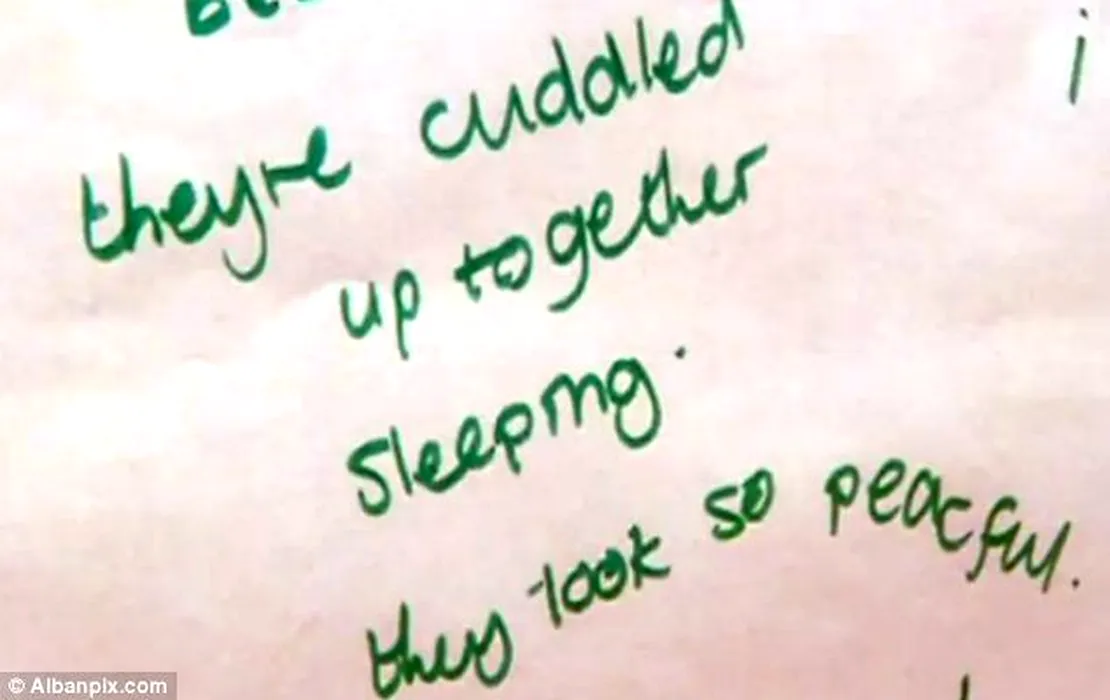 theyre cuddled
up together
sleeping.
they look so peacful.
i
© Albanpix.com